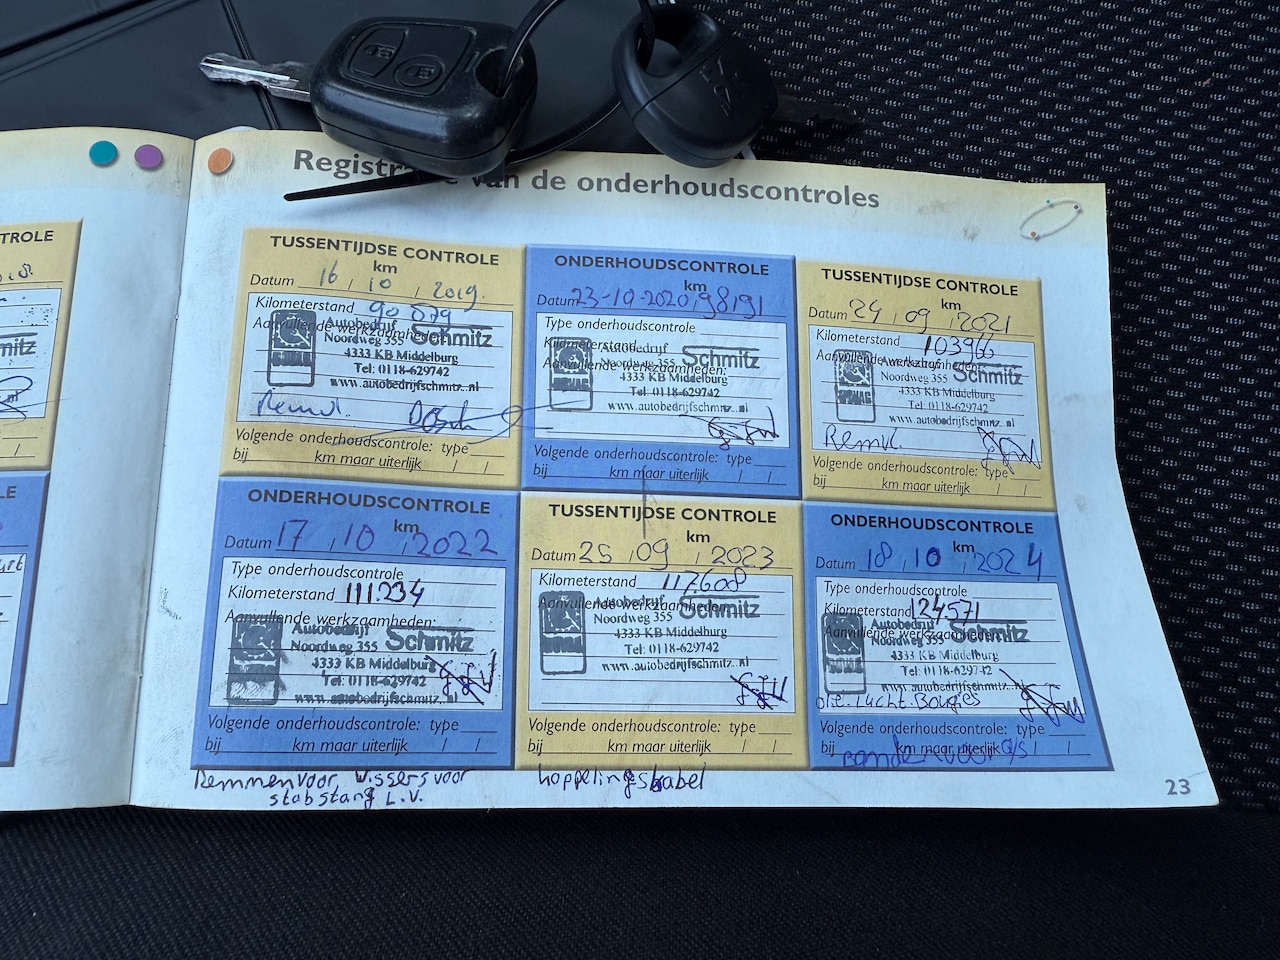 TROLE
mitz
LE
Registr van de onderhoudscontroles
TUSSENTIJDSE CONTROLE
km
Datum 16 / 10 / 2019
Kilometerstand 90 079
Aanvullende werkzaamheden:
Autobedrijf Schmitz
Noordweg 355
4333 KB Middelburg
Tel: 0118-629742
www.autobedrijfschmitz.nl
Remvl.
Volgende onderhoudscontrole: type
bij km maar uiterlijk / /
ONDERHOUDSCONTROLE
km
Datum 23-10-2020 98191
Type onderhoudscontrole
Kilometerstand
Aanvullende werkzaamheden:
Autobedrijf Schmitz
Noordweg 355
4333 KB Middelburg
Tel: 0118-629742
www.autobedrijfschmitz.nl
Volgende onderhoudscontrole: type
bij km maar uiterlijk / /
TUSSENTIJDSE CONTROLE
km
Datum 24 / 09 / 2021
Kilometerstand 103966
Aanvullende werkzaamheden:
Autobedrijf Schmitz
Noordweg 355
4333 KB Middelburg
Tel: 0118-629742
www.autobedrijfschmitz.nl
Remvl.
Volgende onderhoudscontrole: type
bij km maar uiterlijk / /
ONDERHOUDSCONTROLE
km
Datum 17 / 10 / 2022
Type onderhoudscontrole
Kilometerstand 111.234
Aanvullende werkzaamheden:
Autobedrijf Schmitz
Noordweg 355
4333 KB Middelburg
Tel: 0118-629742
www.autobedrijfschmitz.nl
Volgende onderhoudscontrole: type
bij km maar uiterlijk / /
Remmen voor, wissers voor
stabstang L.V.
TUSSENTIJDSE CONTROLE
km
Datum 25 / 09 / 2023
Kilometerstand 117.608
Aanvullende werkzaamheden:
Autobedrijf Schmitz
Noordweg 355
4333 KB Middelburg
Tel: 0118-629742
www.autobedrijfschmitz.nl
Volgende onderhoudscontrole: type
bij km maar uiterlijk / /
koppelingskabel
ONDERHOUDSCONTROLE
km
Datum 18 / 10 / 2024
Type onderhoudscontrole
Kilometerstand 124571
Aanvullende werkzaamheden:
Autobedrijf Schmitz
Noordweg 355
4333 KB Middelburg
Tel: 0118-629742
www.autobedrijfschmitz.nl
olie. Lucht. Bougies
Volgende onderhoudscontrole: type
bij km maar uiterlijk / /
banden voor
23